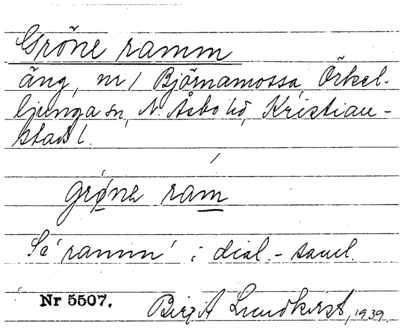 Gröne ramm
äng, nr 1 Björnamossa, Örkel-
ljunga sn, N. Åsbo hd, Kristian-
stads l.
grø̀nə ram
Se 'ramm' i dial.-saml.
Nr 5507. Birgit Lundkvist, 1939.